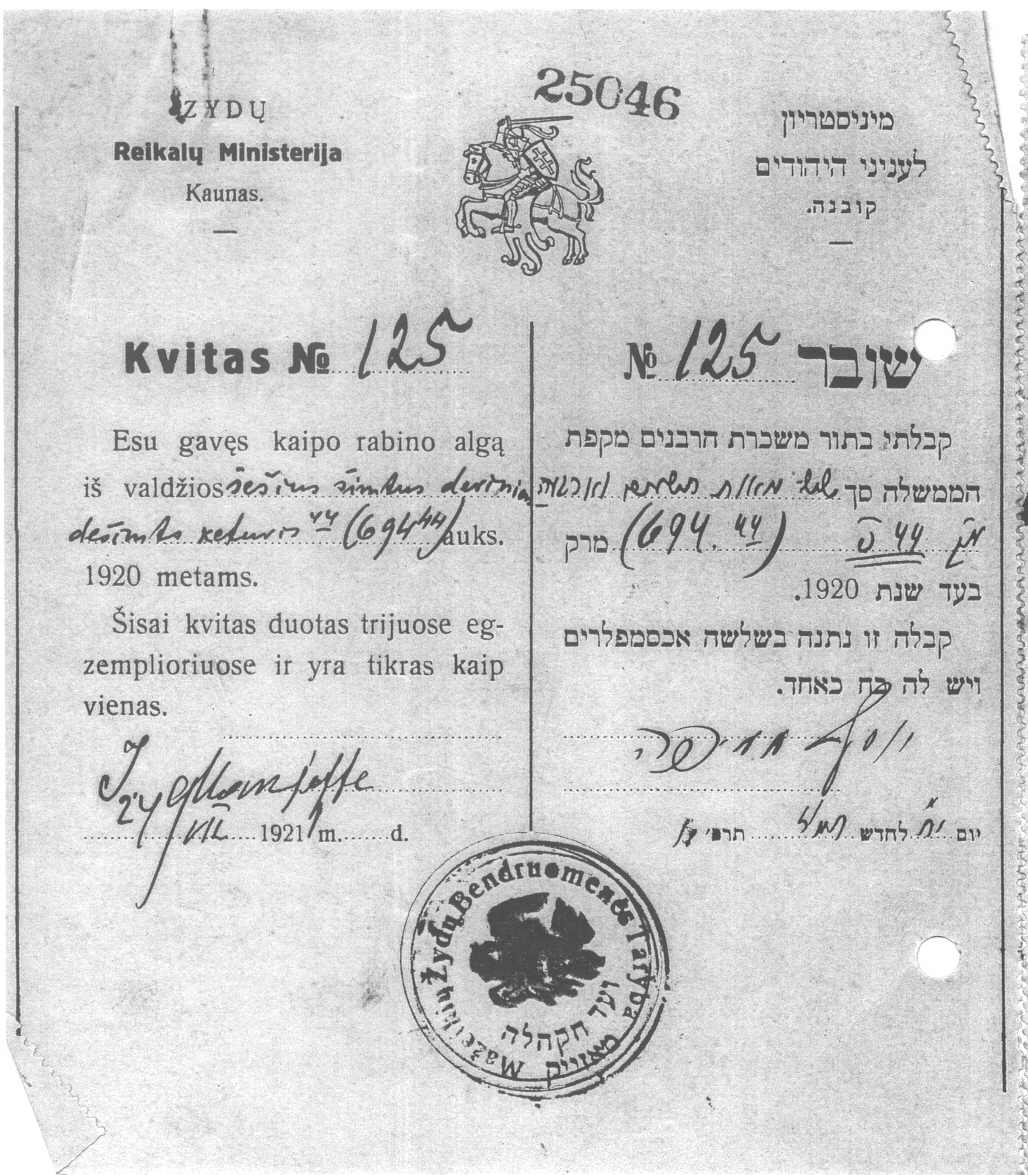 25046
ŽYDŲ
Reikalų Ministerija
Kaunas.
מיניסטריון
לעניני היהודים
קובנה.
Kvitas № 125
Esu gavęs kaipo rabino algą
iš valdžios šešius šimtus devynias
dešimts keturis 44 (694 44) auks.
1920 metams.
Šisai kvitas duotas trijuose eg-
zemplioriuose ir yra tikras kaip
vienas.
24 VII 1921 m. d.
שובר № 125
קבלתי בתור משכרת הרבנים מקפת
הממשלה סך שש מאות תשעים וארבעה
44 (694.44) מרק
בעד שנת 1920.
קבלה זו נתנה בשלשה אכסמפלרים
ויש לה כח כאחד.
יום י"ח לחדש תמוז תרפ"
Mažeikių Žydų Bendruomenės Taryba
ועד הקהלה
מאזייק